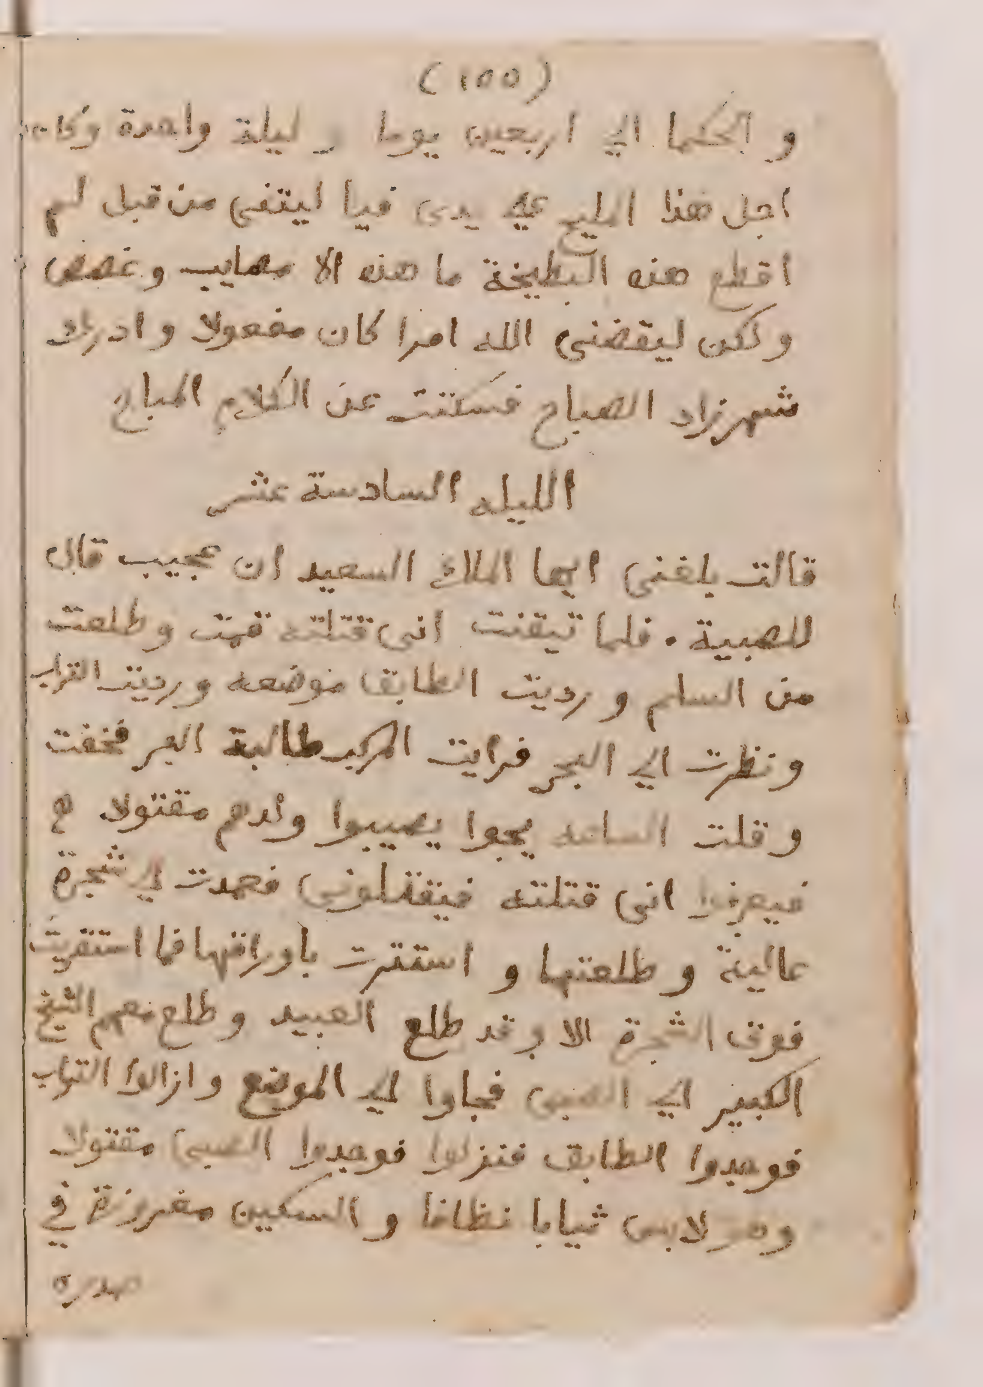 (١٥٥)
و الحكما الي اربعين يوما و ليلة واحدة وكان
اجل هذا المليح علي يدي فيا ليتني من قبل لم
اقطع هذه البطيخة ما هذه الا مصايب و غصص
و لكن ليقضي الله امرا كان مفعولا و ادرك
شهرزاد الصباح فسكتت عن الكلام المباح
الليله السادسة عشر
قالت بلغني ايها الملك السعيد ان عجيب قال
للصبية . فلما تيقنت اني قتلته قمت و طلعت
من السلم و رديت الطابق موضعه و رديت التراب
و نظرت الي البحر فرايت المركب طالبة البر فخفت
و قلت الساعه يجوا يصيبوا ولدهم مقتولا
فيعرفوا اني قتلته فيقتلوني فعمدت الي شجرة
عالية و طلعتها و استترت باوراقها فما استقريت
فوق الشجرة الا وقد طلع العبيد و طلع معهم الشيخ
الكبير ابي الصبي فجاوا الي الموضع و ازالوا التراب
فوجدوا الطابق فنزلوا فوجدوا الصبي مقتولا
وهو لابس ثيابا نظافا و السكين مغروزة في
صدره